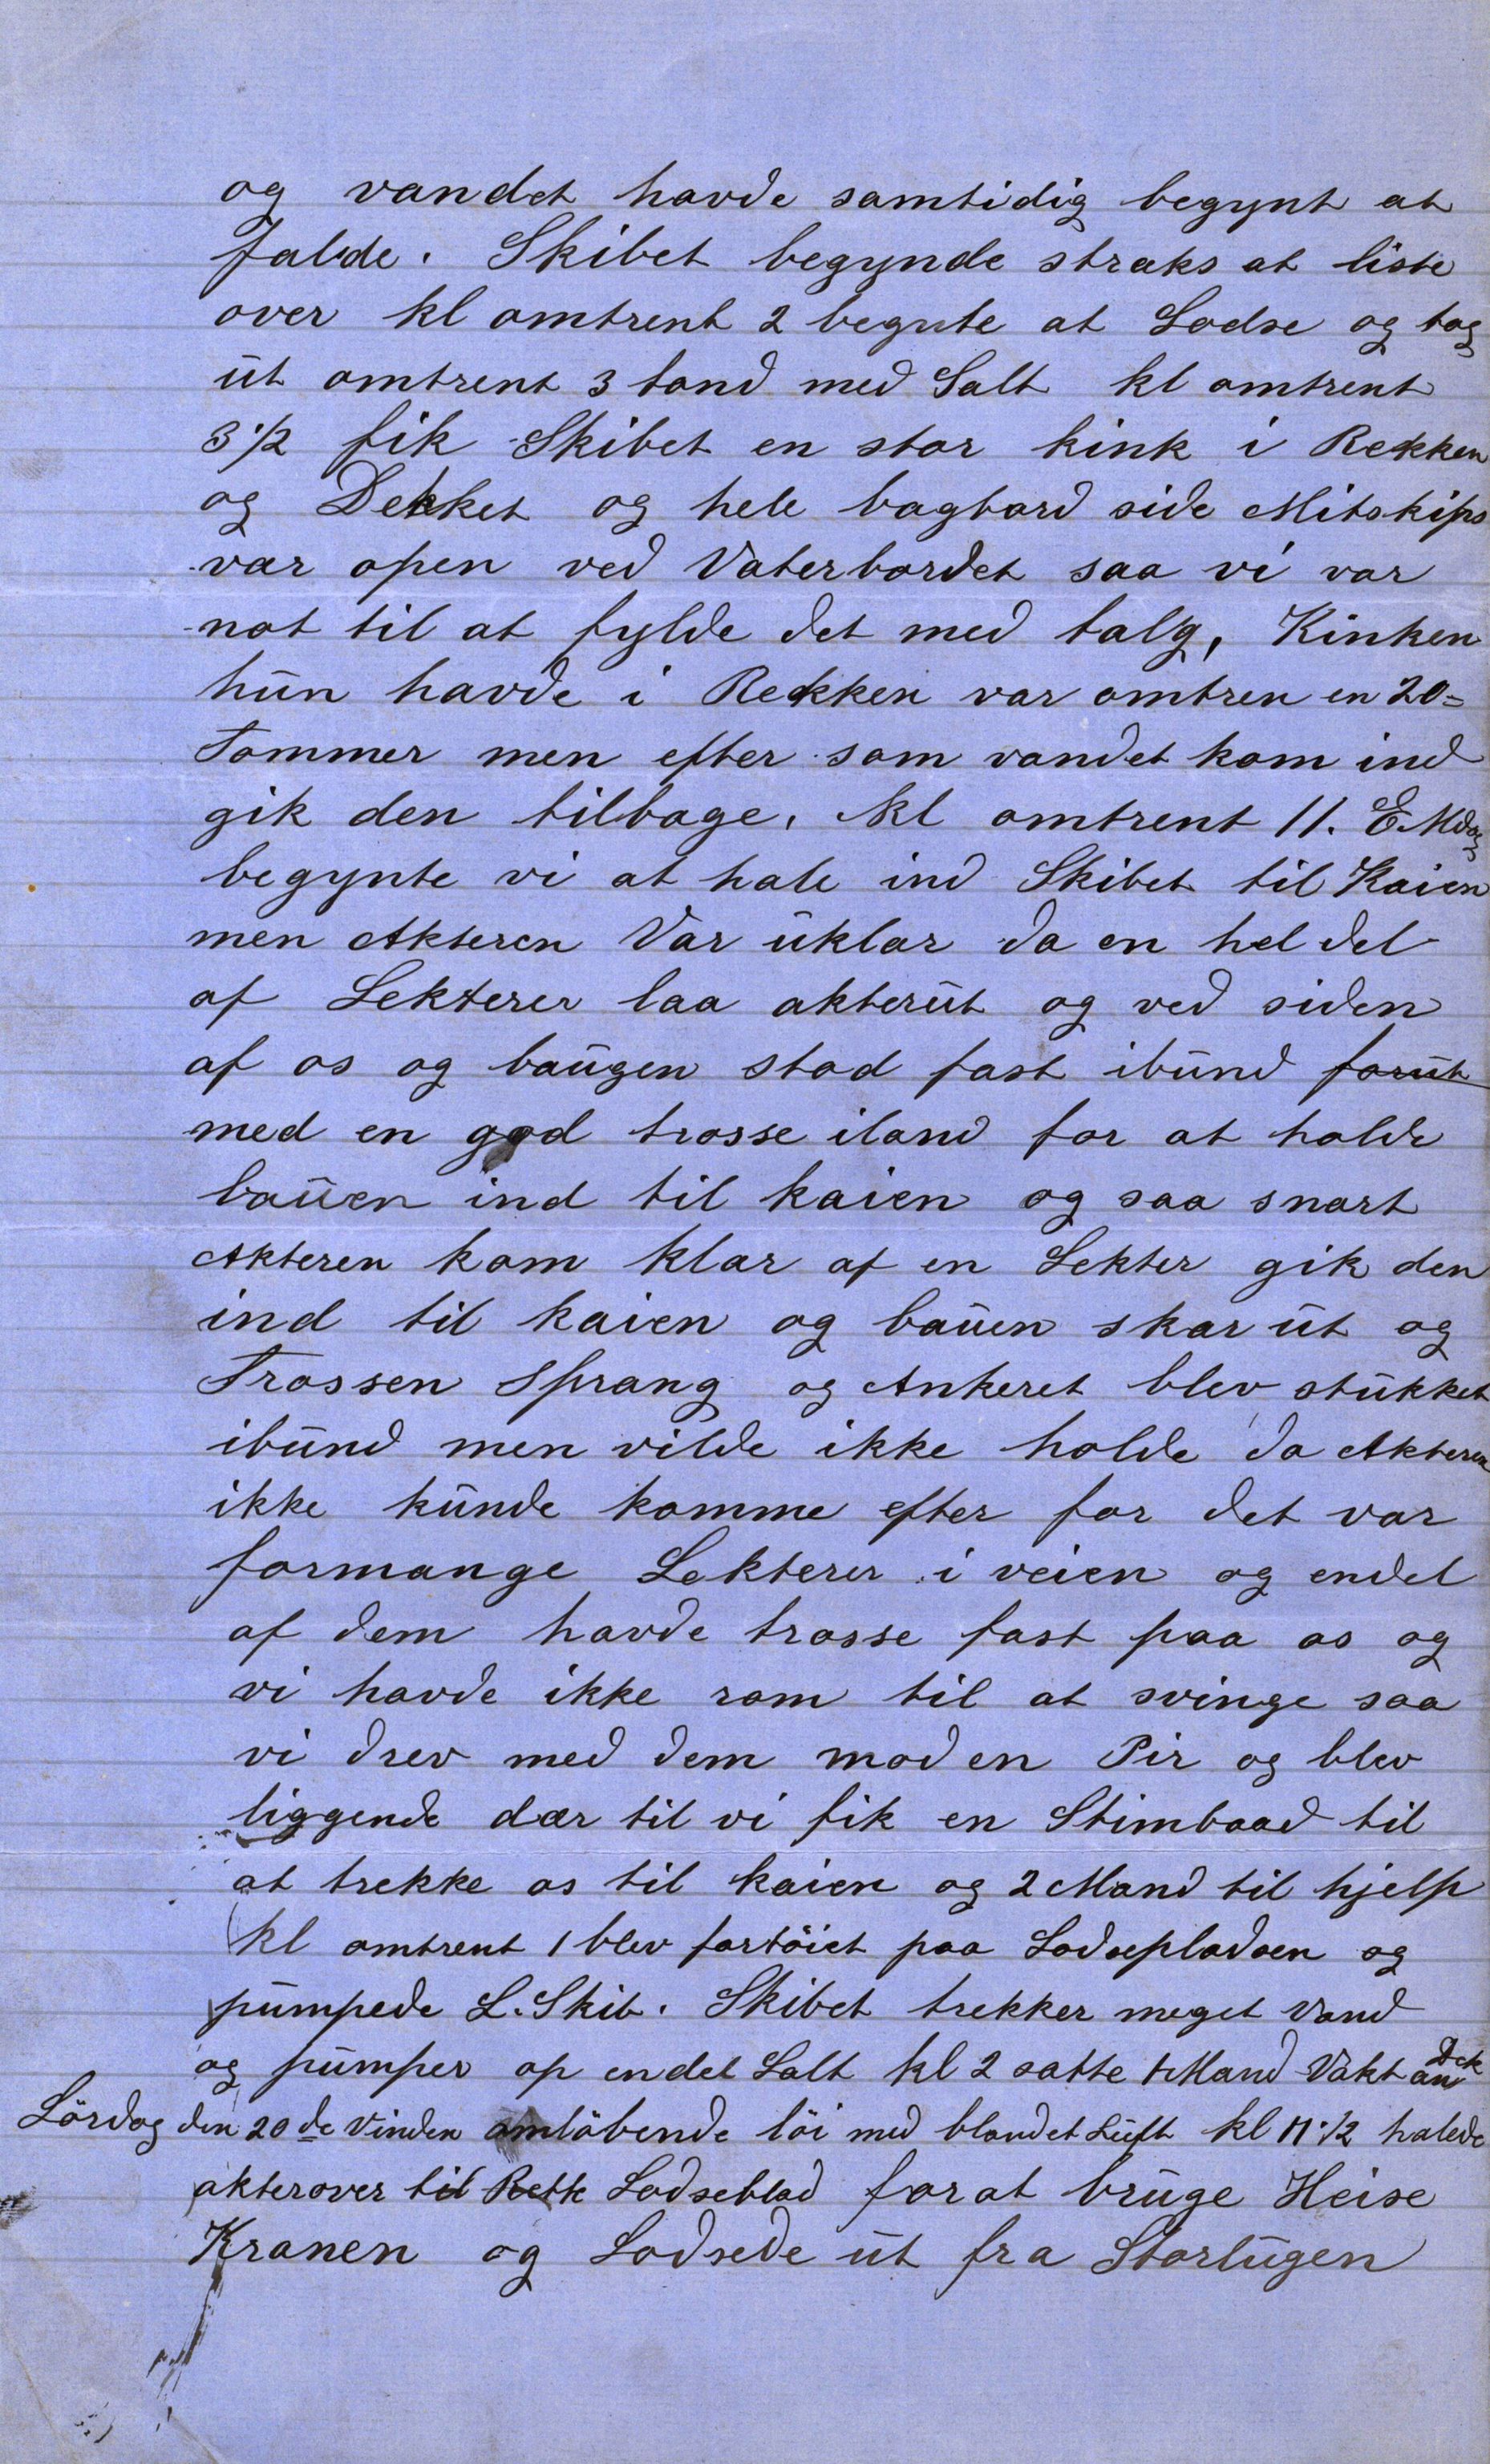 og vandet havde samtidig begynt at
falde. Skibet begynde straks at liste
over kl omtrent 2 begnte at Lodse og tog
ut omtrent 3 tond med Salt kl omtrent
3 1/2 fik Skibet en stor kink i Rekken
og Dekket og hele bagbord side Mitskips
var open ved Vaterbordet saa vi var
not til at fylde det med talg, Kinken
hun havde i Rekken var omtren en 20=
Tommer men efter som vandet kom ind
gik den tilbage. Kl omtrent 11. EMdag
begynte vi at hale ind Skibet til Kaien
men Akteren Var uklar da en hel del
af Lekterer laa akterut og ved siden
af os og baugen stod fast ibund forut
med en god trosse iland for at holde
bauen ind til kaien og saa snart
Akteren kom klar af en Lekter gik den
ind til kaien og bauen skar ut og
Trossen Sprang og Ankeret blev stukket
ibund men vilde ikke holde da Akteren
ikke kunde komme efter for det var
formange Lekterer i veien og endel
af dem havde trosse fast paa os og
vi havde ikke rom til at svinge saa
vi drev med dem mod en Pir og blev
liggende dær til vi fik en Stimbaad til
at trekke os til kaien og 2 Mand til hjelp
kl omtrent 1 blev fortöiet paa Lodsepladsen og
pumpede L. Skib. Skibet trekker meget Vand
og pumper op endel Salt kl 2 satte 1 Mand Vakt an Dek
Lördag den 20de Vinden omlöbende löi med blandet Luft kl 11 1/2 halede
akterover til Rette Lodseblad forat bruge Heise
Kranen og Lodsede ut fra Storlugen